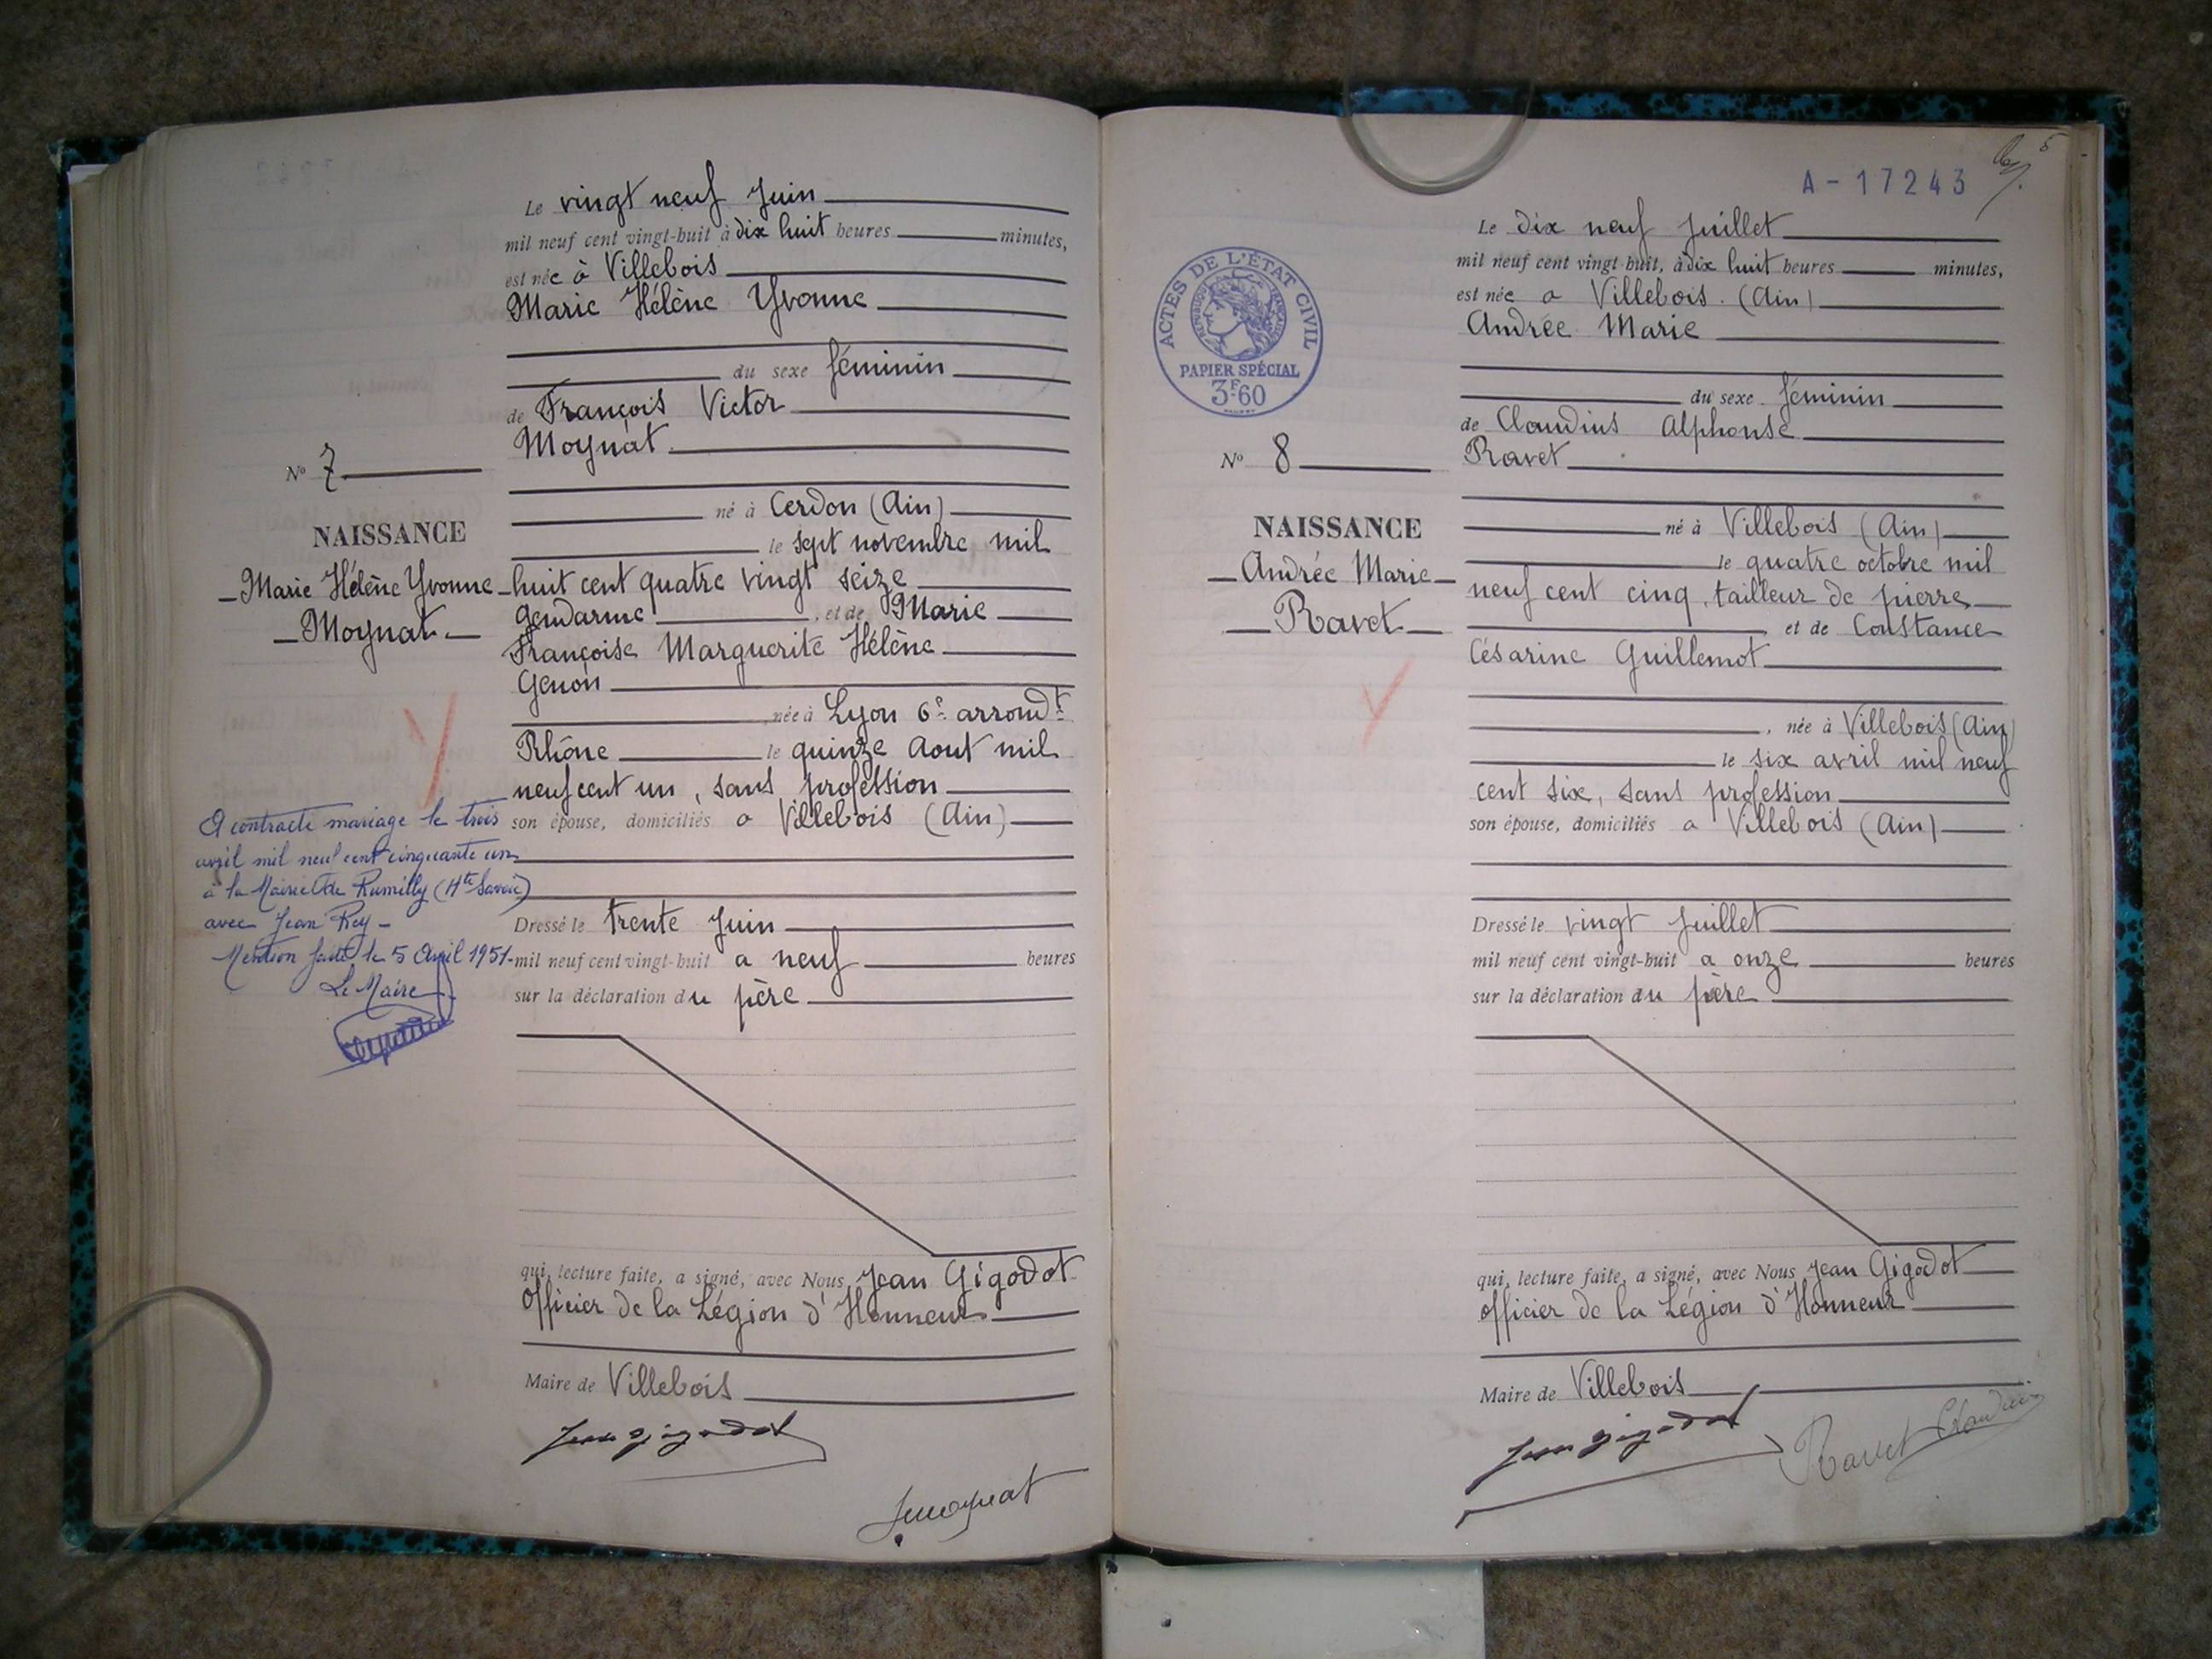 Le vingt neuf Juin
mil neuf cent vingt-huit à dix huit heures minutes,
est née à Villebois
Marie Hélène Yvonne
du sexe féminin
de François Victor
Moynat
né à Cerdon (Ain)
le sept novembre mil
huit cent quatre vingt seize
gendarme , et de Marie
Françoise Marguerite Hélène
Genon
, née à Lyon 6e arrondt
Rhône le quinze Aout mil
neuf cent un, sans profession
son épouse, domiciliés a Villebois (Ain)
Dressé le trente Juin
mil neuf cent vingt-huit a neuf heures
sur la déclaration du père
qui, lecture faite, a signé, avec Nous, Jean Gigodot
Officier de la Légion d'Honneur
Maire de Villebois
Jean Gigodot
Moynat
No 7
NAISSANCE
Marie Hélène Yvonne
Moynat
A contracté mariage le trois
avril mil neuf cent cinquante un
à la Mairie de Rumilly (Hte Savoie)
avec Jean Rey -
Mention faite le 5 Avril 1951.
Le Maire
A-17243
8
ACTES DE L'ÉTAT CIVIL
RÉPUBLIQUE FRANÇAISE
PAPIER SPÉCIAL
3F60
No 8
NAISSANCE
Andrée Marie
Ravet
Le dix neuf juillet
mil neuf cent vingt-huit, à dix huit heures minutes,
est née a Villebois. (Ain)
Andrée Marie
du sexe féminin
de Claudius Alphonse
Ravet
né à Villebois (Ain)
le quatre octobre mil
neuf cent cinq, tailleur de pierre
et de Constance
Césarine Guillemot
, née à Villebois (Ain)
le six avril mil neuf
cent six, sans profession
son épouse, domiciliés a Villebois (Ain)
Dressé le vingt Juillet
mil neuf cent vingt-huit a onze heures
sur la déclaration du père
qui, lecture faite, a signé, avec Nous Jean Gigodot
officier de la Légion d'Honneur
Maire de Villebois
Jean Gigodot
Ravet Claudius